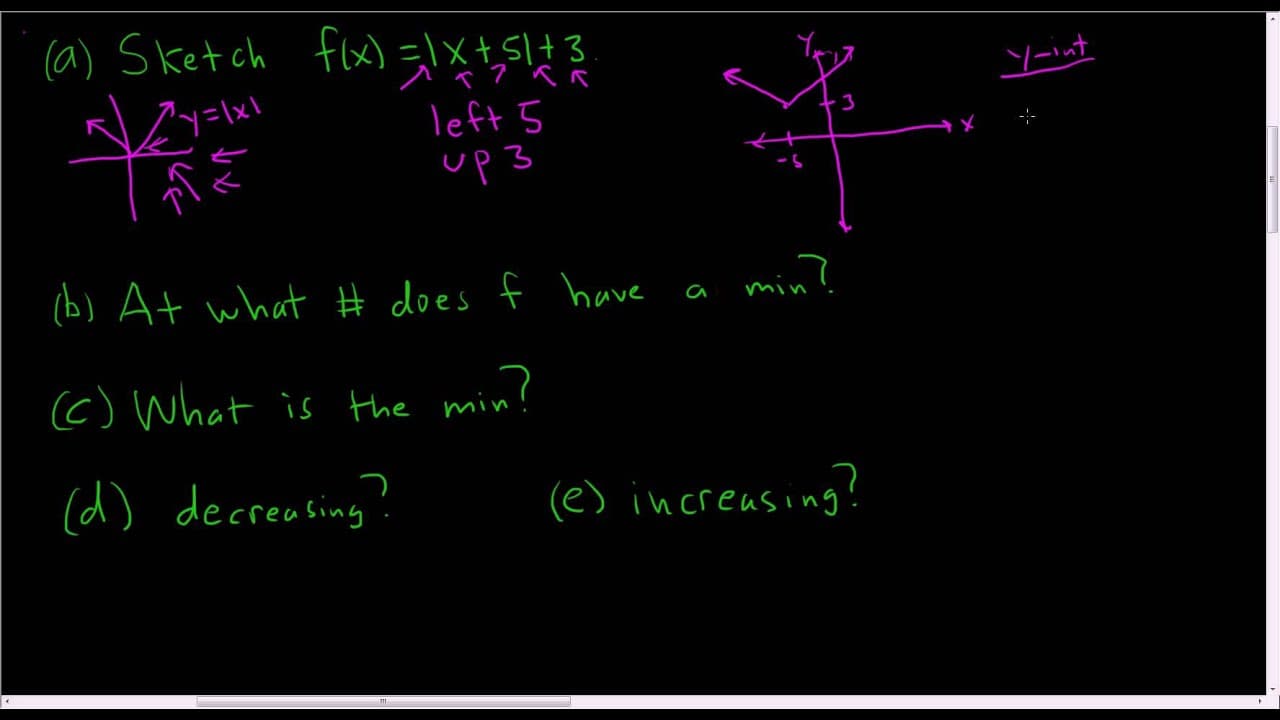 (a) Sketch f(x) = |x + 5| + 3
y = |x|
left 5
up 3
y
3
x
-5
y-int
(b) At what # does f have a min?
(c) What is the min?
(d) decreasing? (e) increasing?